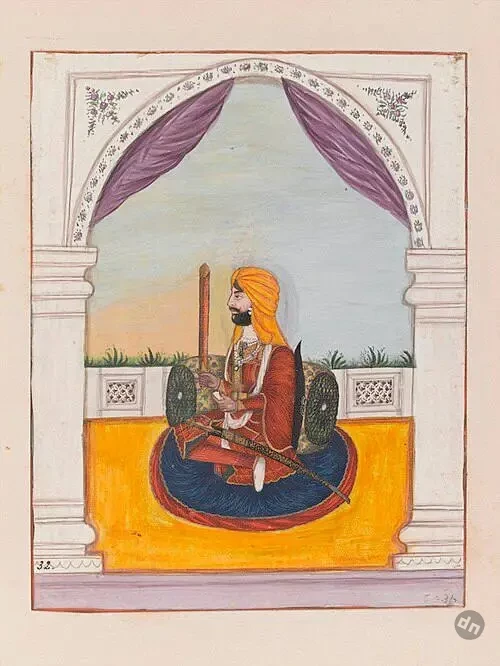 32.
dn